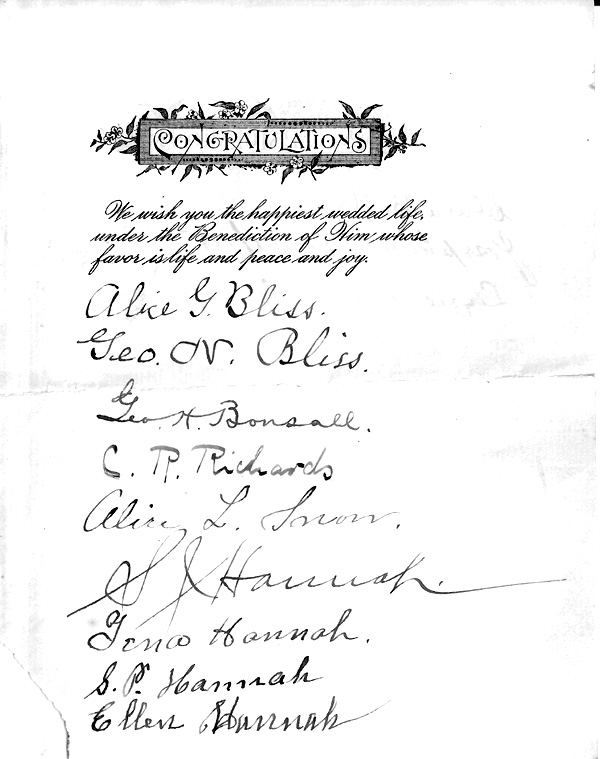 CONGRATULATIONS
We wish you the happiest wedded life,
under the Benediction of Him whose
favor is life and peace and joy.
Alice G. Bliss.
Geo. N. Bliss.
Geo. H. Bonsall.
C. R. Richards
Alice L. Snow.
S J Hannah.
Tena Hannah.
S. P. Hannah
Ellen Hannah